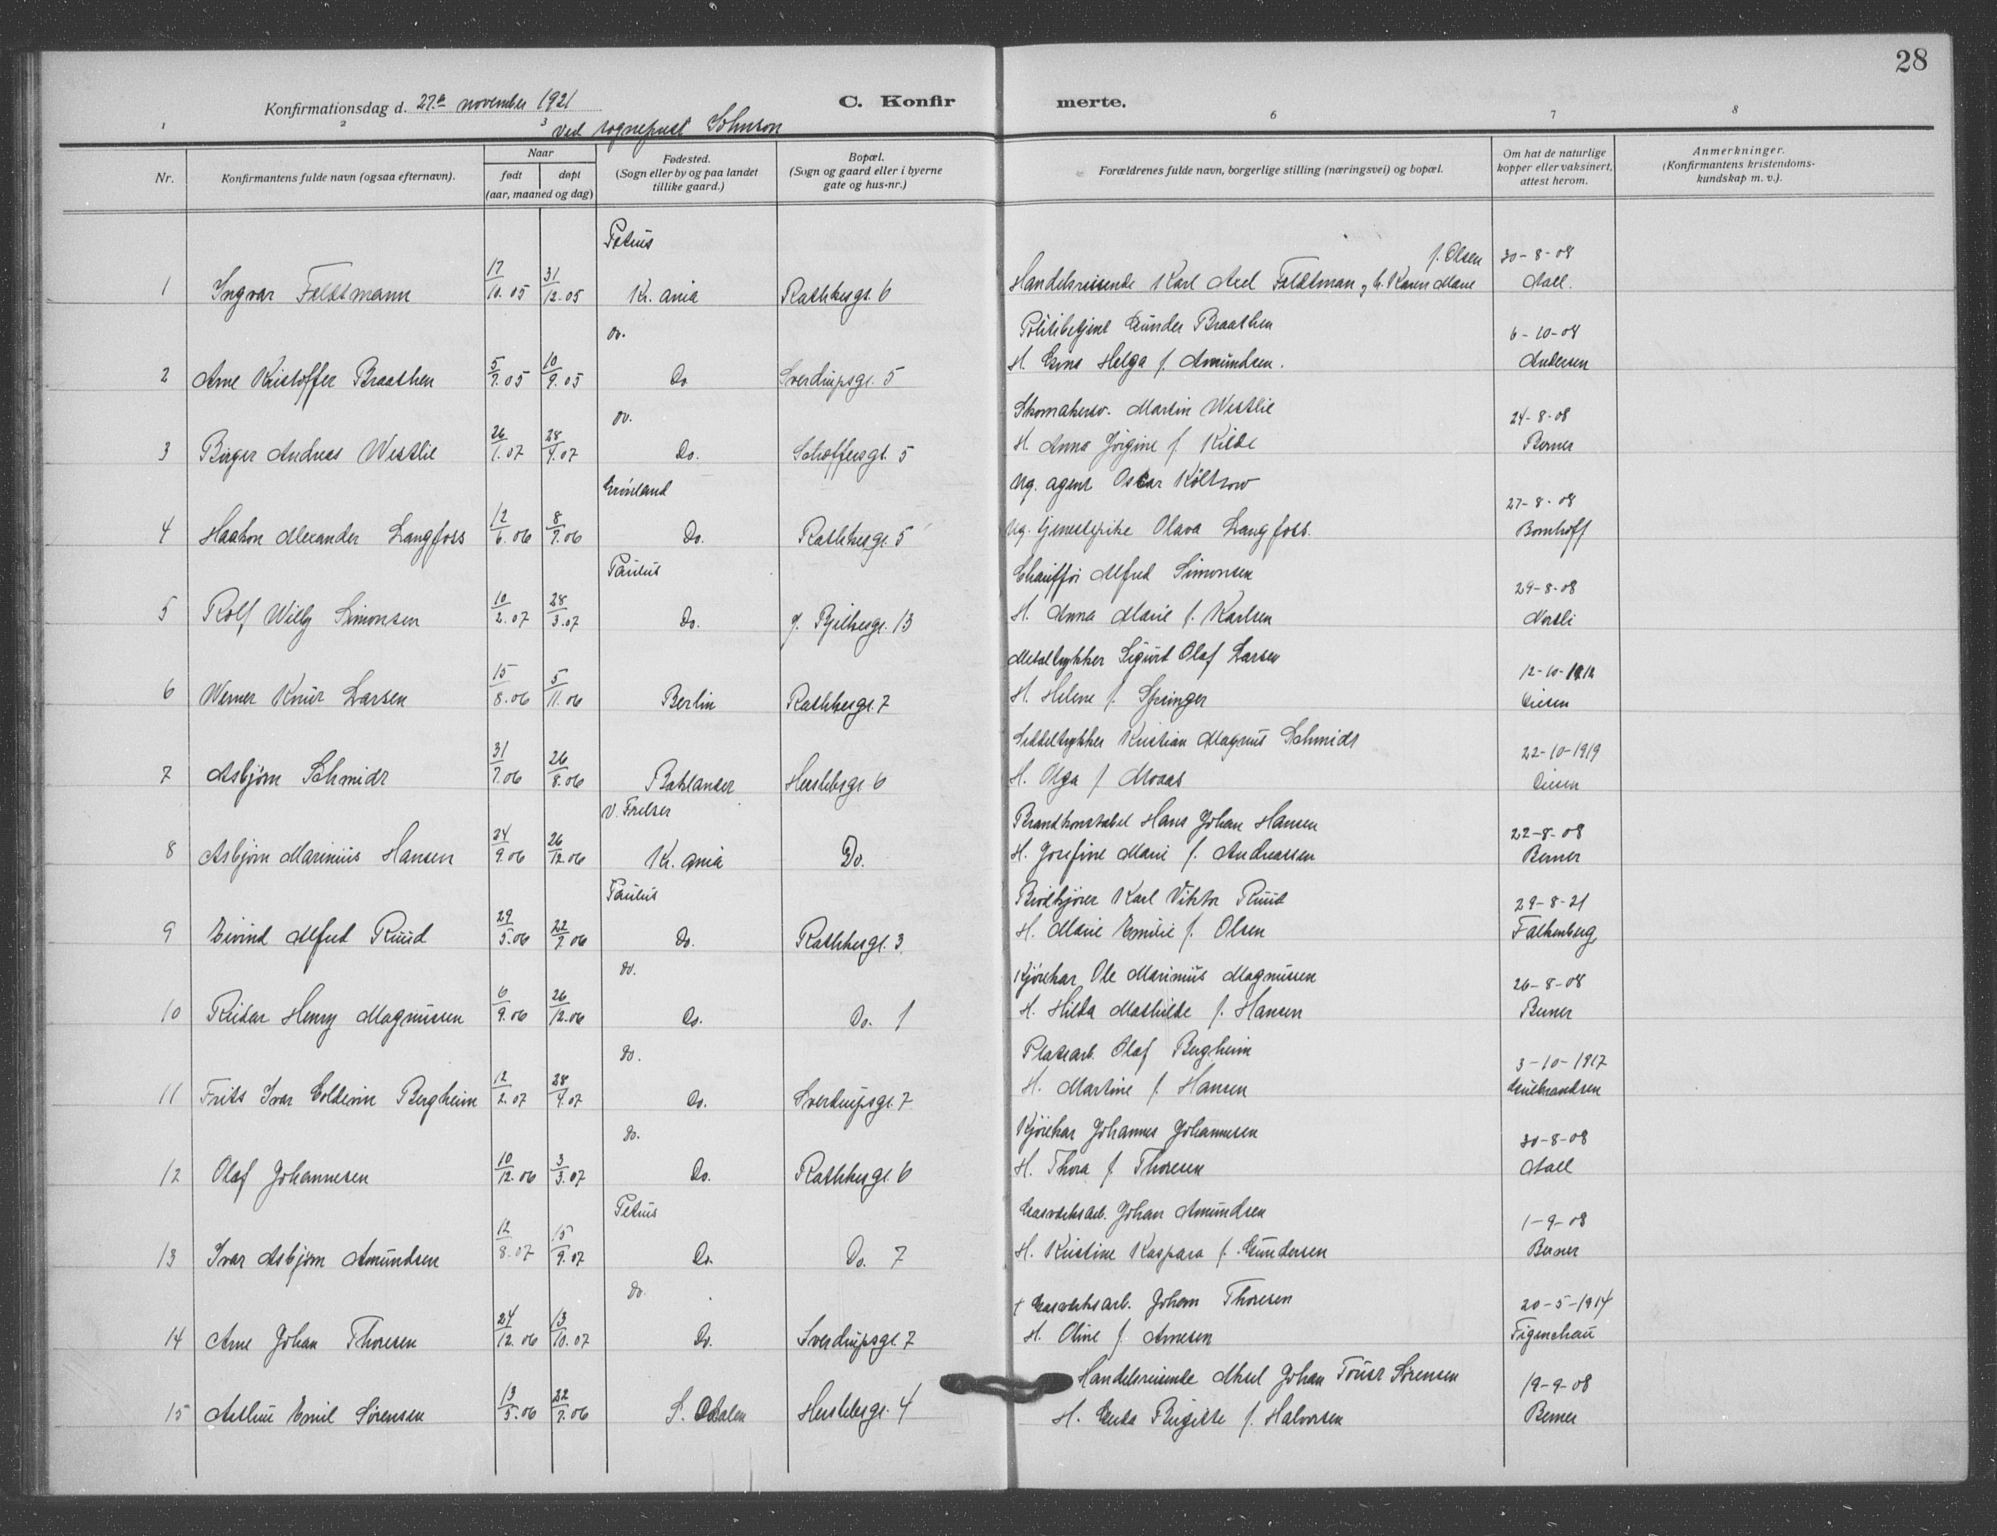 28
Konfirmationsdag d. 27de november 1921 C. Konfir merte.
ved sogneprest Johnson
1 2 3 6 7 8
Nr. Konfirmantens fulde navn (ogsaa efternavn). Naar født døpt (aar, maaned og dag) Fødested. (Sogn eller by og paa landet tillike gaard.) Bopæl. (Sogn og gaard eller i byerne gate og hus-nr.) Forældrenes fulde navn, borgerlige stilling (næringsvei) og bopæl. Om hat de naturlige kopper eller vaksinert, attest herom. Anmerkninger. (Konfirmantens kristendoms-kundskap m. v.).
Petrus f. Olsen 30-8-08
1 Ingvar Feldtmann 17/10.05 31/12.05 Kr.ania Rathkesgt. 6 Handelsreisende Karl Axel Feldtman, h. Karen Marie Aall.
Do. Politibetjent Gunder Braathen 6-10-08
2 Arne Kristoffer Braathen 5/7.05 10/9.05 Do Sverdrupsgt. 5 H. Helga f. Amundsen. Andersen
Do. Skomakersv. Martin Westlie 24-8-08
3 Birger Andreas Westlie 26/1.07 28/4.07 Do. Schoffersgt. 5 H. Anna Jørgine f. Kilde Berner
Grønland Ug. agent Oskar Koltzow 27-8-08
4 Haakon Alexander Langfoss 12/6.06 8/7.06 Do. Rathkesgt. 5 Ug. tjenestepike Olava Langfoss. Bomhoff
Paulus Chauffør Alfred Simonsen 29-8-08
5 Rolf Willy Simonsen 10/2.07 28/3.07 Do. J. Bjelkesgt. 13 H. Anna Marie f. Karlsen
Metaltrykker Sigurd Olaf Larsen 12-10-1912
6 Werner Knut Larsen 15/8.06 5/11.06 Berlin Rathkesgt. 7 H. Helene f. Springer
Kristian Magnus Schmidt 22-10-1919
7 Asbjørn Schmidt 31/7.06 26/8.06 Herslebsgt 6 H. Olga f. Moaas
V. Frelser Brandkonstabel Hans Johan Hansen 22-8-08
8 Asbjørn Marinius Hansen 24/9.06 26/12.06 Kr.ania Do. H. Josefine Marie f. Andreassen Berner
Paulus Brødkjører Karl Viktor Ruud 29-8-21
9 Eivind Alfred Ruud 29/5.06 22/7.06 Do. Rathkesgt. 3 H. Marie Emilie f. Olsen Falkenberg
Do. Kjørekar Ole Marinius Magnussen 26-8-08
10 Reidar Henry Magnussen 6/9.06 26/12.06 Do. Do. 1 H. Hilda Mathilde f. Hansen Berner
Do. Pladsarb. Olaf Bergheim 3-10-1917
11 Frits Ivar Bergheim 12/2.07 28/4.07 Do. Sverdrupsgt. 7 H. Martine f. Hansen Gulbrandsen
Do. Kjørekar Johannes Johannesen 30-8-08
12 Olaf Johannesen 10/12.06 3/3.07 Do. Rathkesgt. 6 H. Thora f. Thoresen Aall
Petrus Gasverksarb. Johan Amundsen 1-9-08
13 Ivar Asbjørn Amundsen 12/8.07 15/9.07 Do. Do. 7 H. Kristine Kaspara f. Gundersen Berner
Do. † Gasverksarb. Johan Thoresen 20-5-1914
14 Arne Johan Thoresen 24/12.06 13/10.07 Do. Sverdrupsgt. 7 H. Oline f. Arnesen Figenschau
Handelsreisende Aksel Johan Sørensen 19-9-08
15 Arthur Emil Sørensen 13/5.06 22/7.06 S. Odalen Herslebsgt. 4 H. Birgitte f. Halvorsen Berner